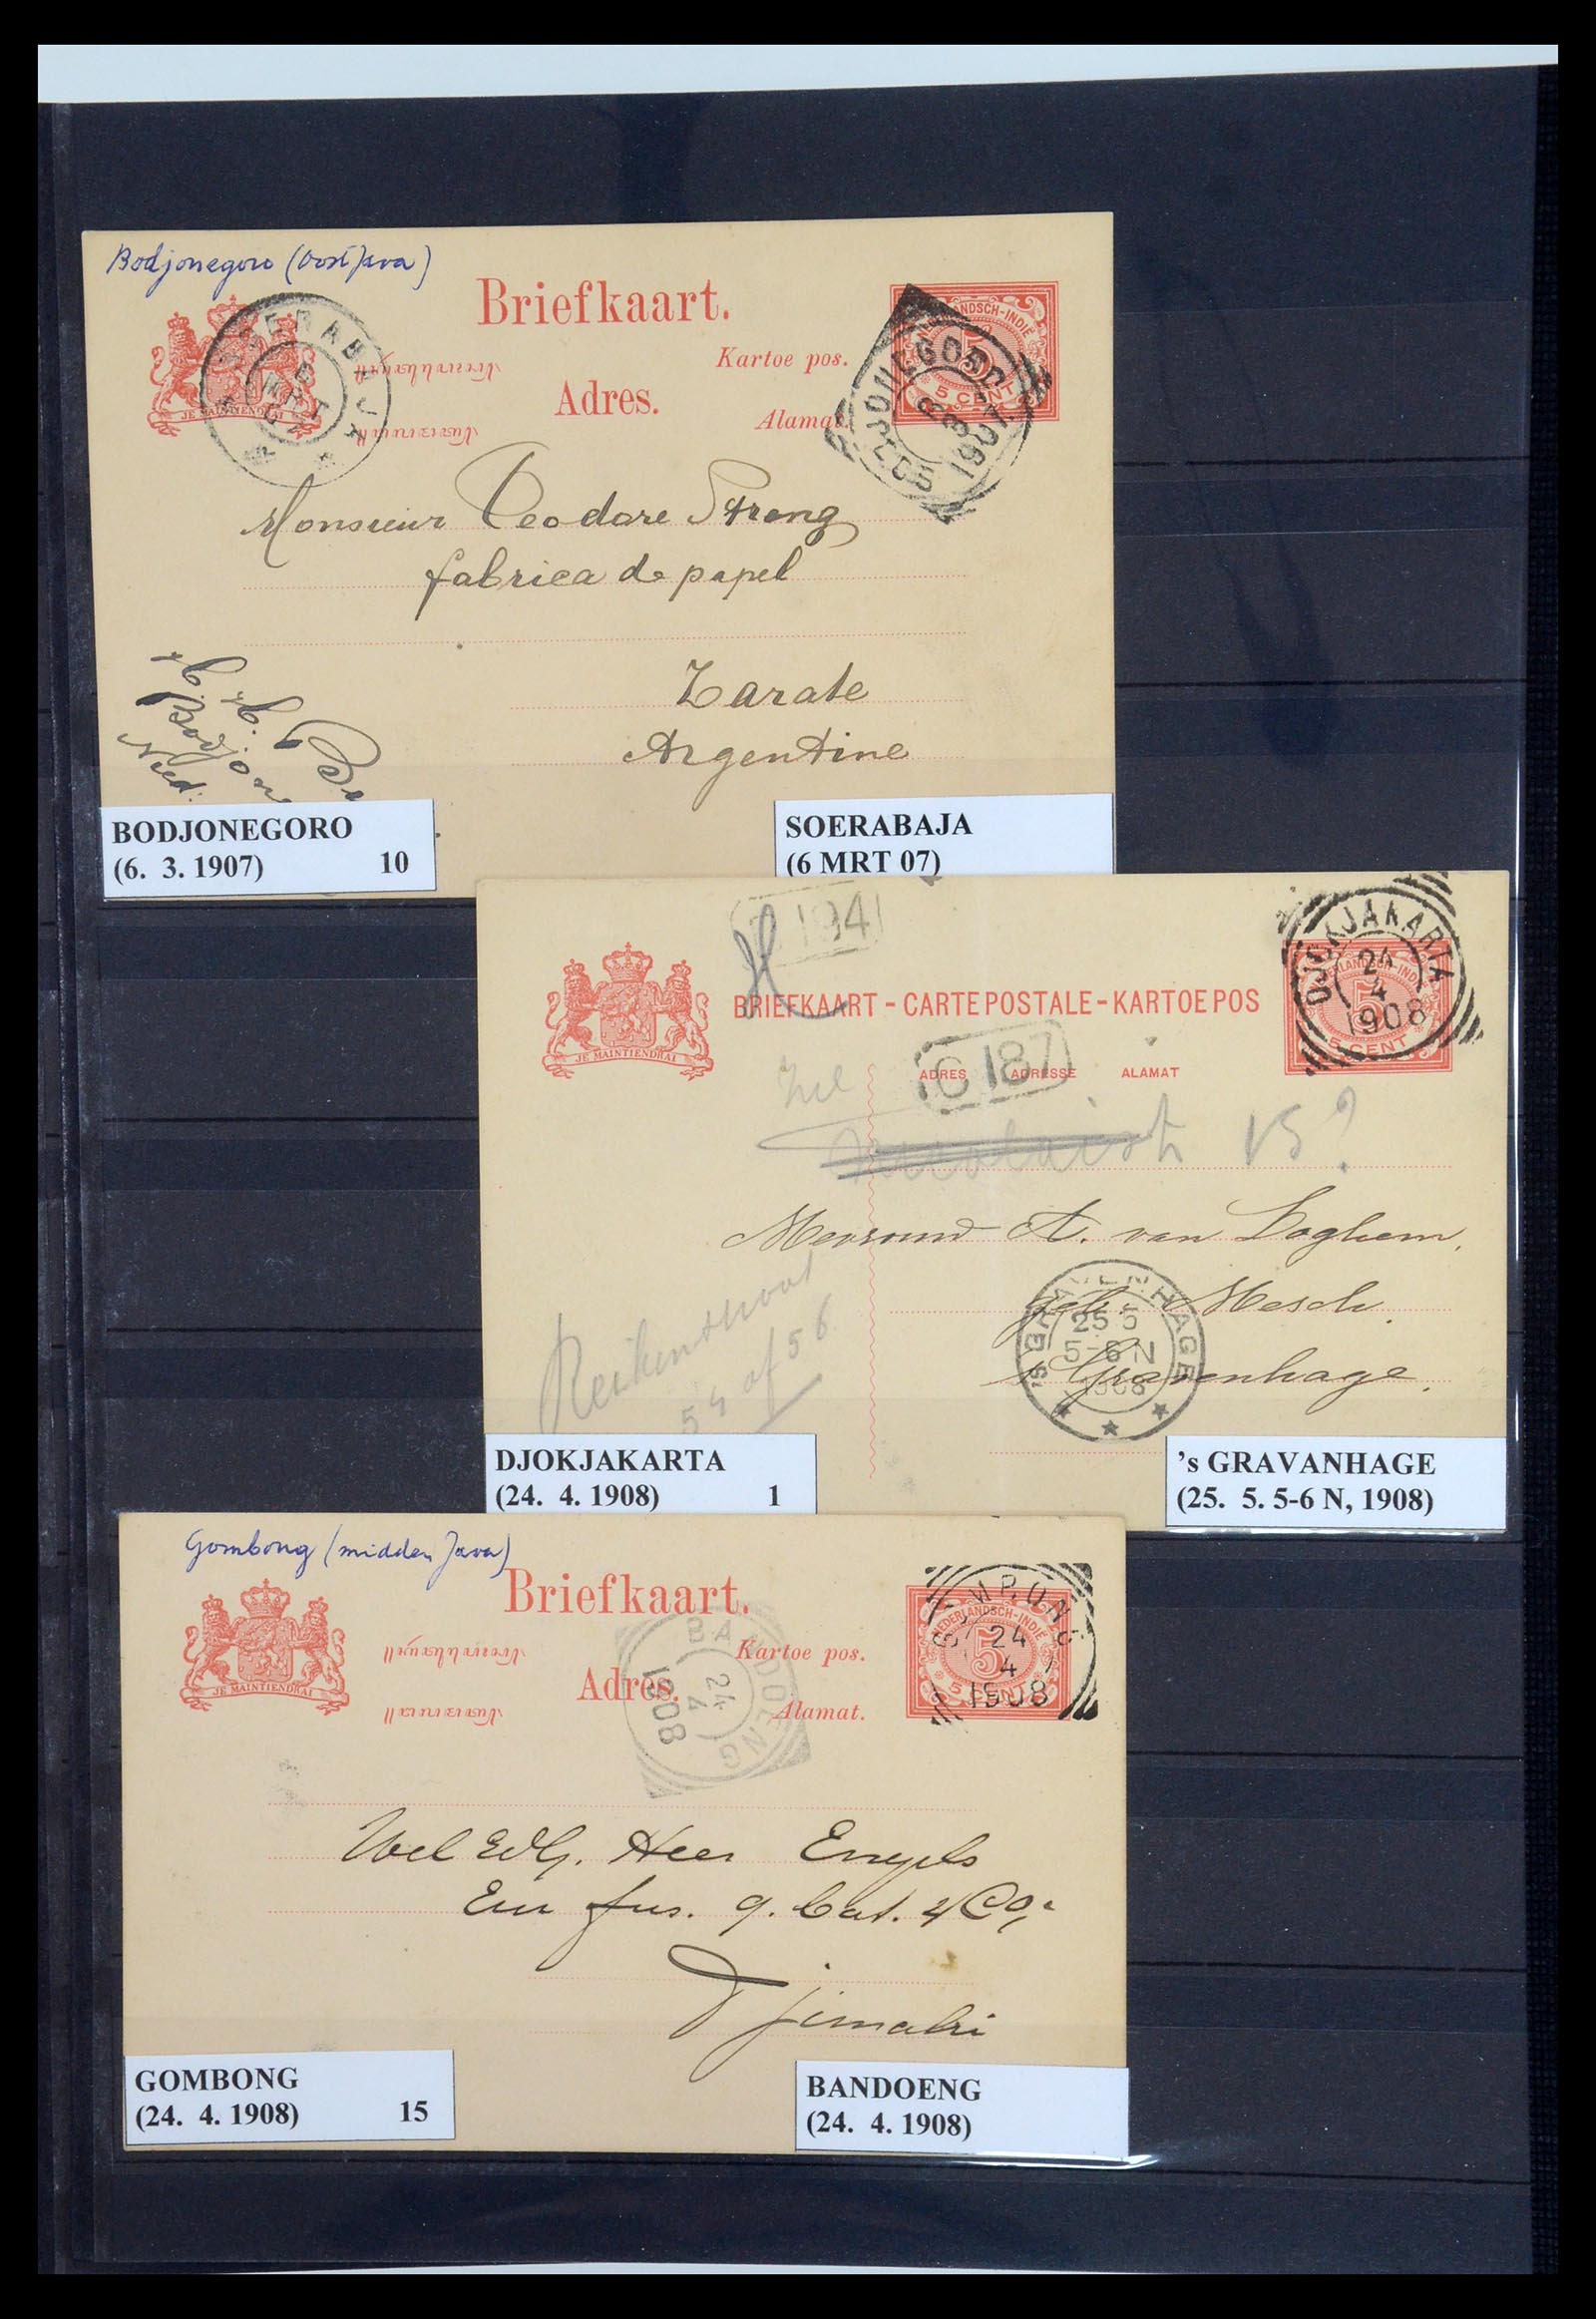 Bodjonegoro (Oost Java)
Briefkaart.
Kartoe pos.
Adres.
Alamat.
JE MAINTIENDRAI
SOERABAJA
6
MRT
07
NEDERLANDSCH-INDIË
5
5 CENT
BODJONEGORO
6 3
1907
Monsieur Teodore Streng
fabrica de papel
Zarate
Argentine
Bodjone
Ned.
BODJONEGORO
(6. 3. 1907) 10
SOERABAJA
(6 MRT 07)
194
BRIEFKAART - CARTE POSTALE - KARTOE POS
ADRES ADRESSE ALAMAT
C 187
JE MAINTIENDRAI
NEDERLANDSCH-INDIË
5
5 CENT
DJOKJAKARTA
24
4
1908
15?
Mevrouw A. van Loghem.
geb. Mesch.
's Gravenhage.
'S GRAVENHAGE
25 5
5-6 N
1908
54 of 56
DJOKJAKARTA
(24. 4. 1908) 1
's GRAVANHAGE
(25. 5. 5-6 N, 1908)
Gombong (midden Java)
Briefkaart.
Kartoe pos.
Adres.
Alamat.
JE MAINTIENDRAI
BANDOENG
24
4
1908
NEDERLANDSCH-INDIË
5
5 CENT
GOMBONG
24
4
1908
Wel Ed. G. Heer Engels
Eur fus. 9. Bat. 4 Co.
Tjimahi
GOMBONG
(24. 4. 1908) 15
BANDOENG
(24. 4. 1908)